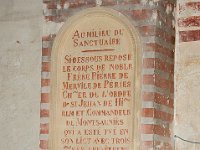 AU MILIEU DU
SANCTUAIRE
SI DESSOUS REPOSE
LE CORPS DE NOBLE
FRERE PIERRE DE
MERVILE DE PERIES
CH DE L'ORDRE
DE ST JEHAN DE
ET COMMANDEU
DE MONTSAUNES
QUI A ESTE TVE EN
SON LICT AVEC TROIS